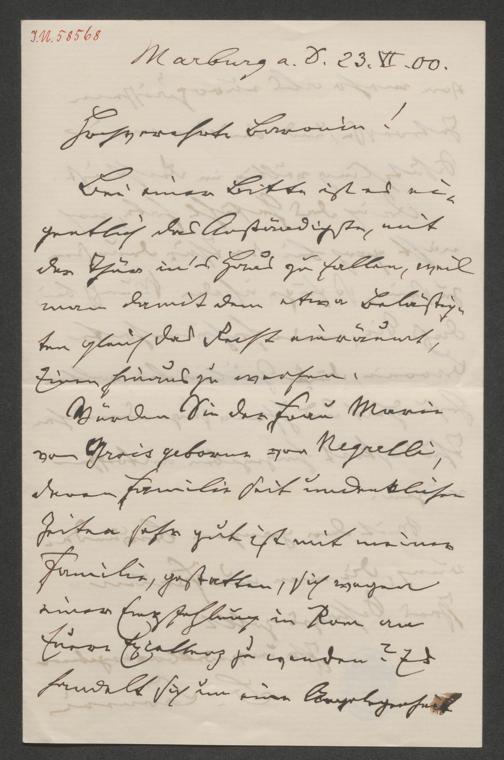 I.N. 58568
Marburg a. D. 23. VI. 00.
Hochverehrte Baronin!
Bei einer Bitte ist es ei-
gentlich das Anständigste, mit
der Thür in's Haus zu fallen, weil
man damit dem etwa Belästig-
ten gleich das Recht einräumt,
Einen hinauszuwerfen.
Würden Sie der Frau Marie
von Grois geborne von Negrelli,
deren Familie seit undenklichen
Zeiten sehr gut ist mit meiner
Familie, gestatten, sich wegen
einer Empfehlung in Rom an
Euere Excellenz zu wenden? Es
handelt sich um eine Angelegenheit